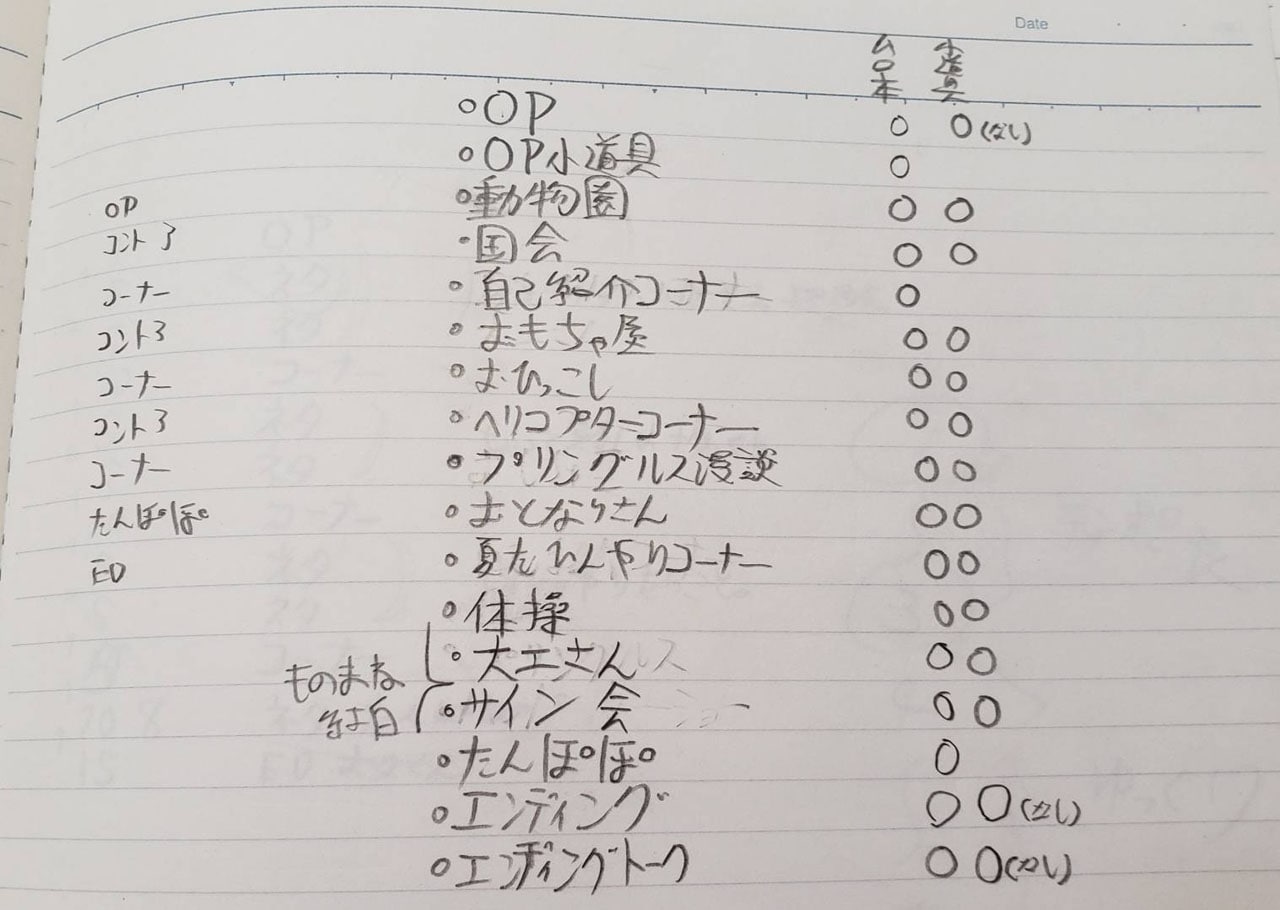 Date
台本 小道具
○OP ○ ○(なし)
○OP小道具 ○
OP ○動物園 ○ ○
コント3 ・国会 ○ ○
コーナー ○自己紹介コーナー ○
コント3 ○おもちゃ屋 ○ ○
コーナー ○おひっこし ○ ○
コント3 ○ヘリコプターコーナー ○ ○
コーナー ○プリングルス漫談 ○ ○
たんぽぽ ○おとなりさん ○ ○
ED ○夏だひんやりコーナー ○ ○
○体操 ○ ○
ものまね ○大工さん ○ ○
紅白 ○サイン会 ○ ○
○たんぽぽ ○
○エンディング ○ ○(なし)
○エンディングトーク ○ ○(なし)